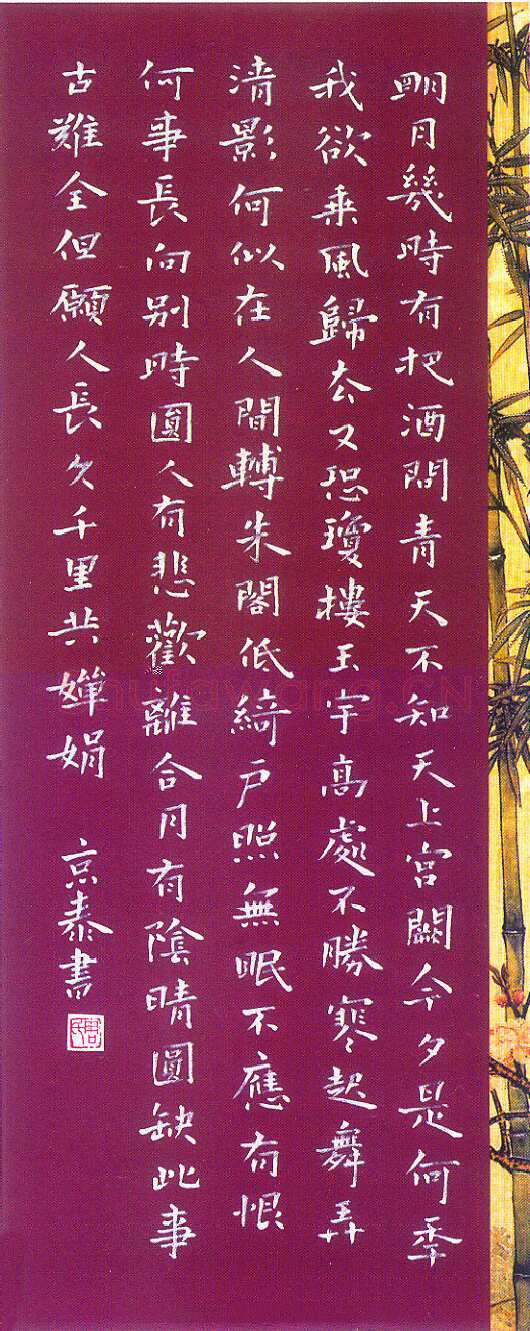 明月幾時有把酒問青天不知天上宮闕今夕是何年
我欲乘風歸去又恐瓊樓玉宇高處不勝寒起舞弄
清影何似在人間轉朱閣低綺戶照無眠不應有恨
何事長向別時圓人有悲歡離合月有陰晴圓缺此事
古難全但願人長久千里共嬋娟 京泰書